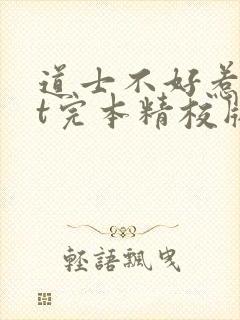 道士不好惹
t完本精校版
輕語飄曳